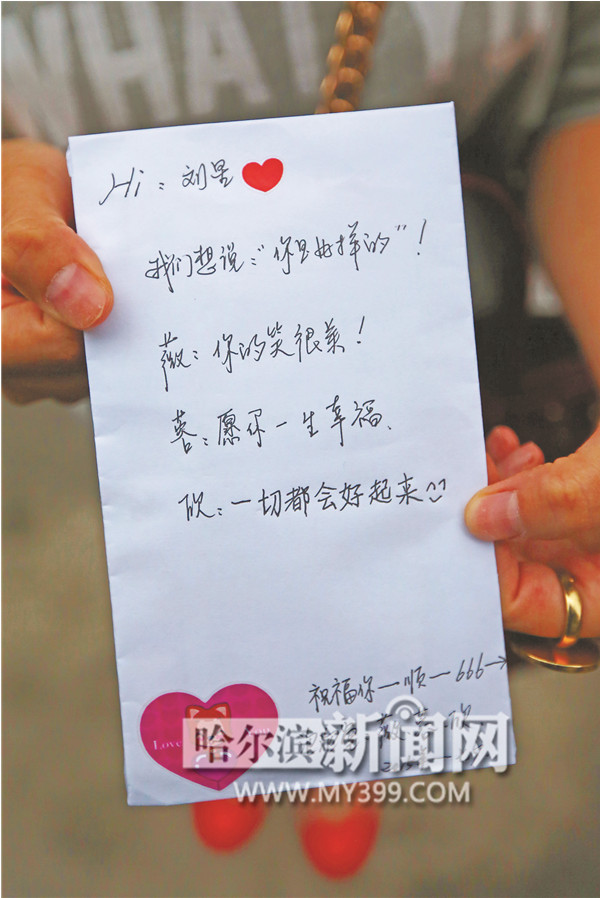 WHAT YO
Hi：刘
我们想说：“你是好样的”！
薇：你的笑很美！
蓉：愿你一生幸福、
欣：一切都会好起来
祝福你一顺一666→
薇 欣
Love
哈尔滨新闻网
WWW.MY399.COM